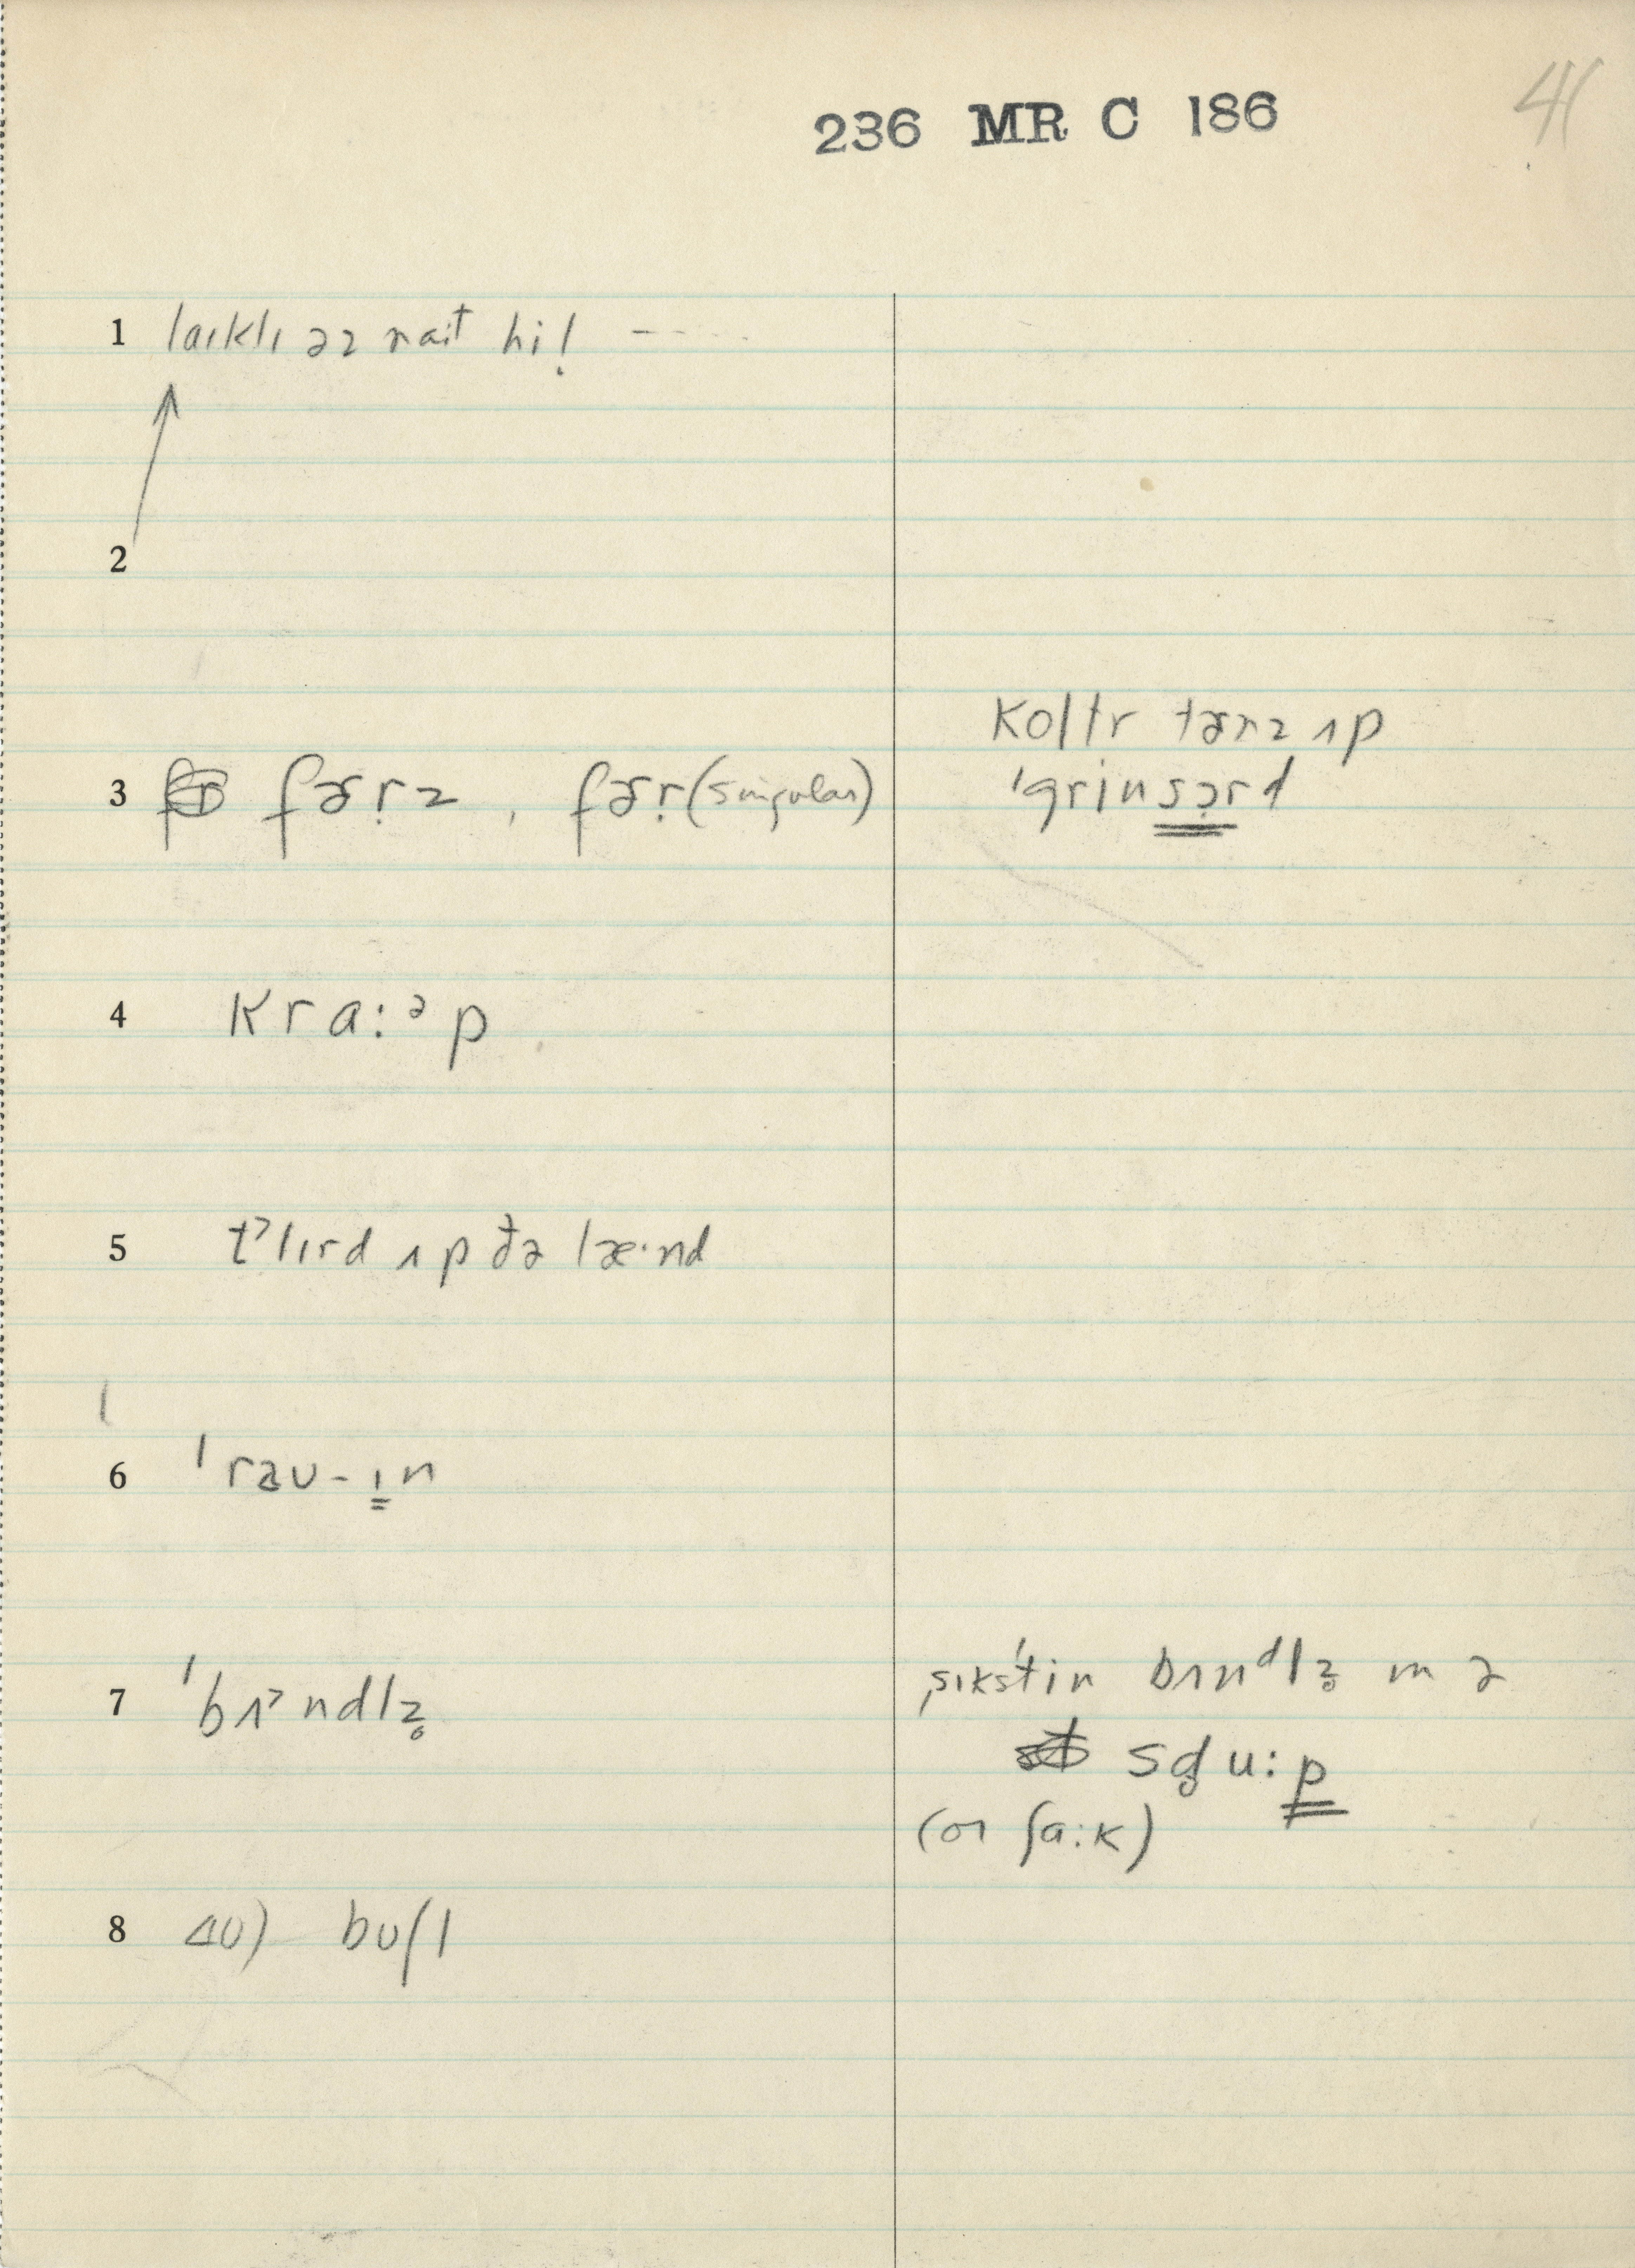 236 MR C 186
41
1 laɪklɪ əz nait hi! ---
2
3 fɚr̩z , fɚr̩ (singular)
koltr tɚnz ʌp
ˈgrinsə̣rd
4 kra:ᵊp
5 t˃lɪrd ʌp ðə læ·nd
6 ˈrau-ɪn
7 ˈbʌ˃ndlz̥
ˌsɪksˈtin bʌnᵈlz̥ ɪn ə
sd̥u:p
(or ʃa:k)
8 40) buʃl